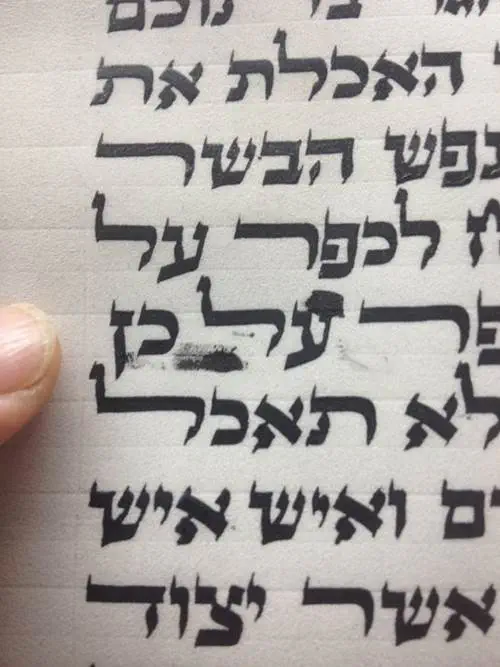 האכלת את
נפש הבשר
לכפר על
פר על כן
לא תאכל
ואיש איש
אשר יצוד